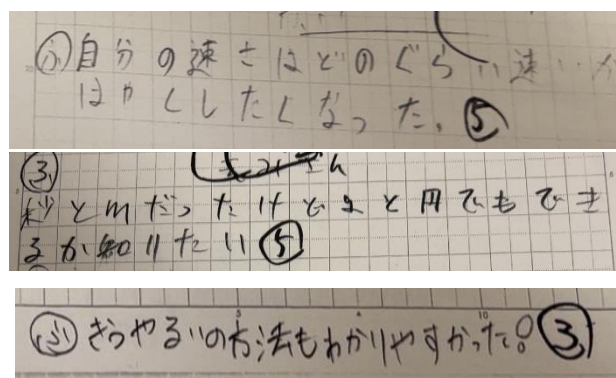 ㋫自分の速さはどのぐらい速いか
はやくしたくなった。⑤
③
秒とmだったけど2と円でもでき
るか知りたい⑤
㋫きつやるいの方法もわかりやすかった。③